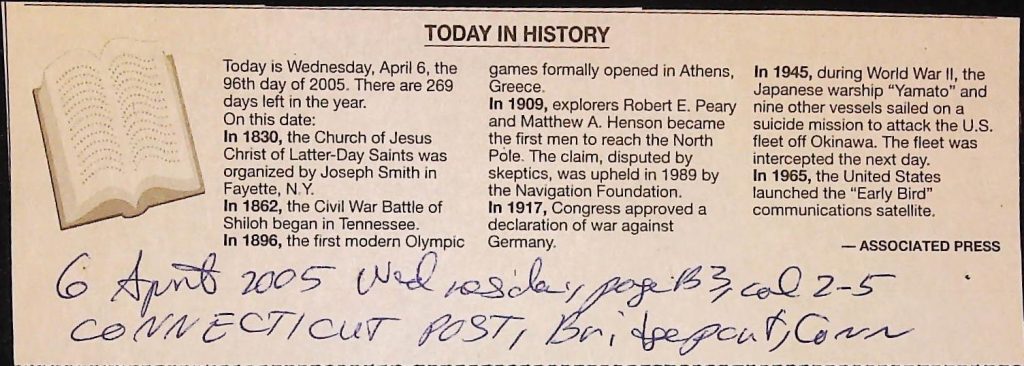 TODAY IN HISTORY
Today is Wednesday, April 6, the
96th day of 2005. There are 269
days left in the year.
On this date:
In 1830, the Church of Jesus
Christ of Latter-Day Saints was
organized by Joseph Smith in
Fayette, N.Y.
In 1862, the Civil War Battle of
Shiloh began in Tennessee.
In 1896, the first modern Olympic
games formally opened in Athens,
Greece.
In 1909, explorers Robert E. Peary
and Matthew A. Henson became
the first men to reach the North
Pole. The claim, disputed by
skeptics, was upheld in 1989 by
the Navigation Foundation.
In 1917, Congress approved a
declaration of war against
Germany.
In 1945, during World War II, the
Japanese warship “Yamato” and
nine other vessels sailed on a
suicide mission to attack the U.S.
fleet off Okinawa. The fleet was
intercepted the next day.
In 1965, the United States
launched the “Early Bird”
communications satellite.
— ASSOCIATED PRESS
6 April 2005 Wednesday, page B3, col 2-5
CONNECTICUT POST, Bridgeport, Conn